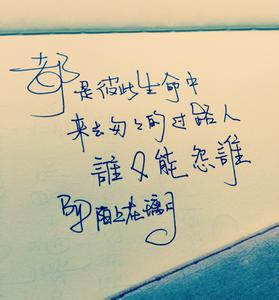 都是彼此生命中
来去匆々的过路人
誰又能怨誰
By 陌上